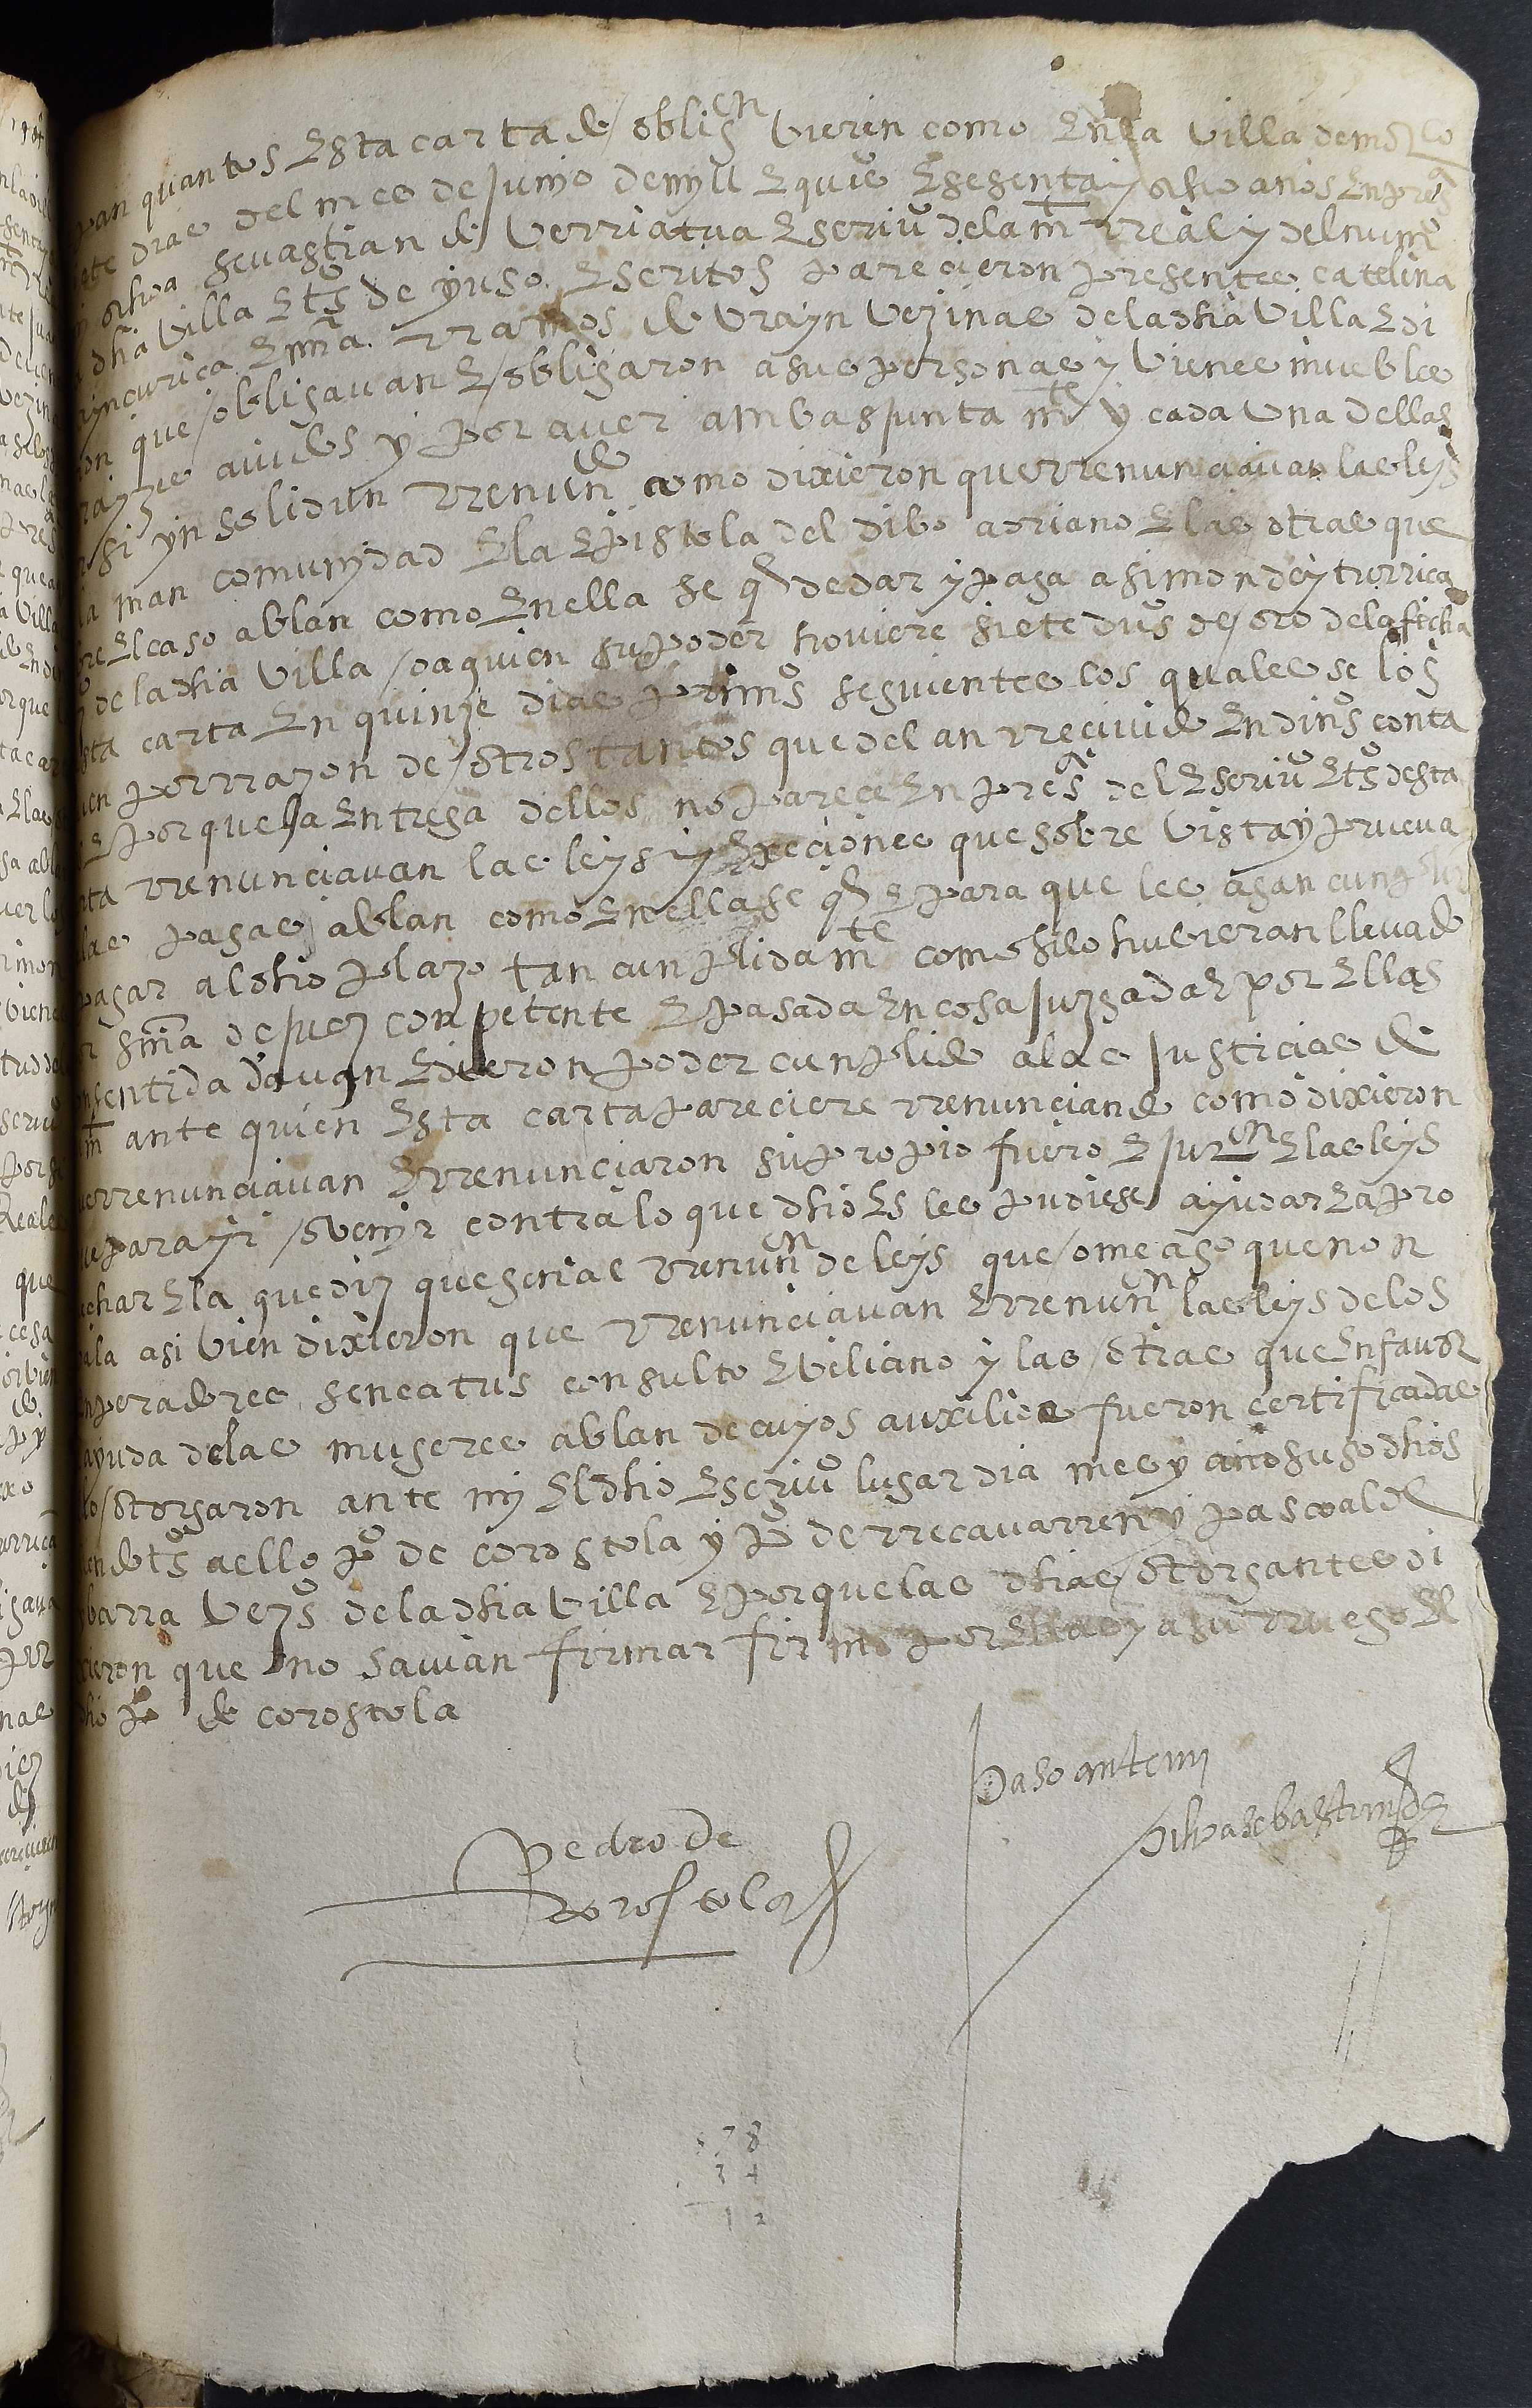 quantos esta carta de oblign vieren como en la villa de mo co
dias del mes de junyo de myll e quis e sesenta y ocho años en pres
ochoa sevastian de verriatua escriu de la m rreal y del num
dha villa e ts de yuso escritos parecieron presentes catelina
e ma rramos de urayn vezinas de la dha villa e di
que obligavan e obligaron a sus personas y vienes muebles
avidos y por aver ambas junta mte y cada una dellas
si yn solidun rrenunde como dixieron que rrenunciavan las leys
man comunydad e la epistola del dibo adriano e las otras que
el caso ablan como en ella se q de dar y paga a simon de yturriça
de la dha villa o a quien su poder hoviere siete dus de oro de la fecha
carta en quinze dias primos seguientes los quales se los
por rrazon de otros tantos que del an rrecivido en dinos conta
e porque la entrega dellos no parece en presa del escriu e ts desta
rrenunciavan las leys y execiones que sobre vista y prueva
pagas ablan como en ellas se q e para que les agan cunplir
pagar al dho plazo tan cunplidamte como si lo huvieran llevado
snia de juez conpetente e pasada en cosa juzgada e por ellas
consentida davan e dieron poder cunplido a las justicias de
m ante quien esta carta pareciere rrenunciando como dixieron
que rrenunciavan e rrenunciaron su propio fuero e jurn e las leys
que para yr o venyr contra lo que dho es les pudiese ayudar e apro
vechar e la que diz que general rrenunn de leys que ome ago que non
vala asi bien dixieron que rrenunciavan e rrenunn las leys de los
enperadores seneatus consulto veliano y las otras que en favor
ayuda de las mugeres ablan de cuyos auxilios fueron certificadas
otorgaron ante my el dho escriu lugar dia mes y año susodhos
ts a ello po de corostola y po de rrecavarren y pascoal de
ybarra vezs de la dha villa e porque las dhas otorgantes di
xieron que no savian firmar firmo por ellas y a su rruego el
dho po de corostola
Paso ante my
Ochoa sebastian
Pedro de
corostola
578
34
12